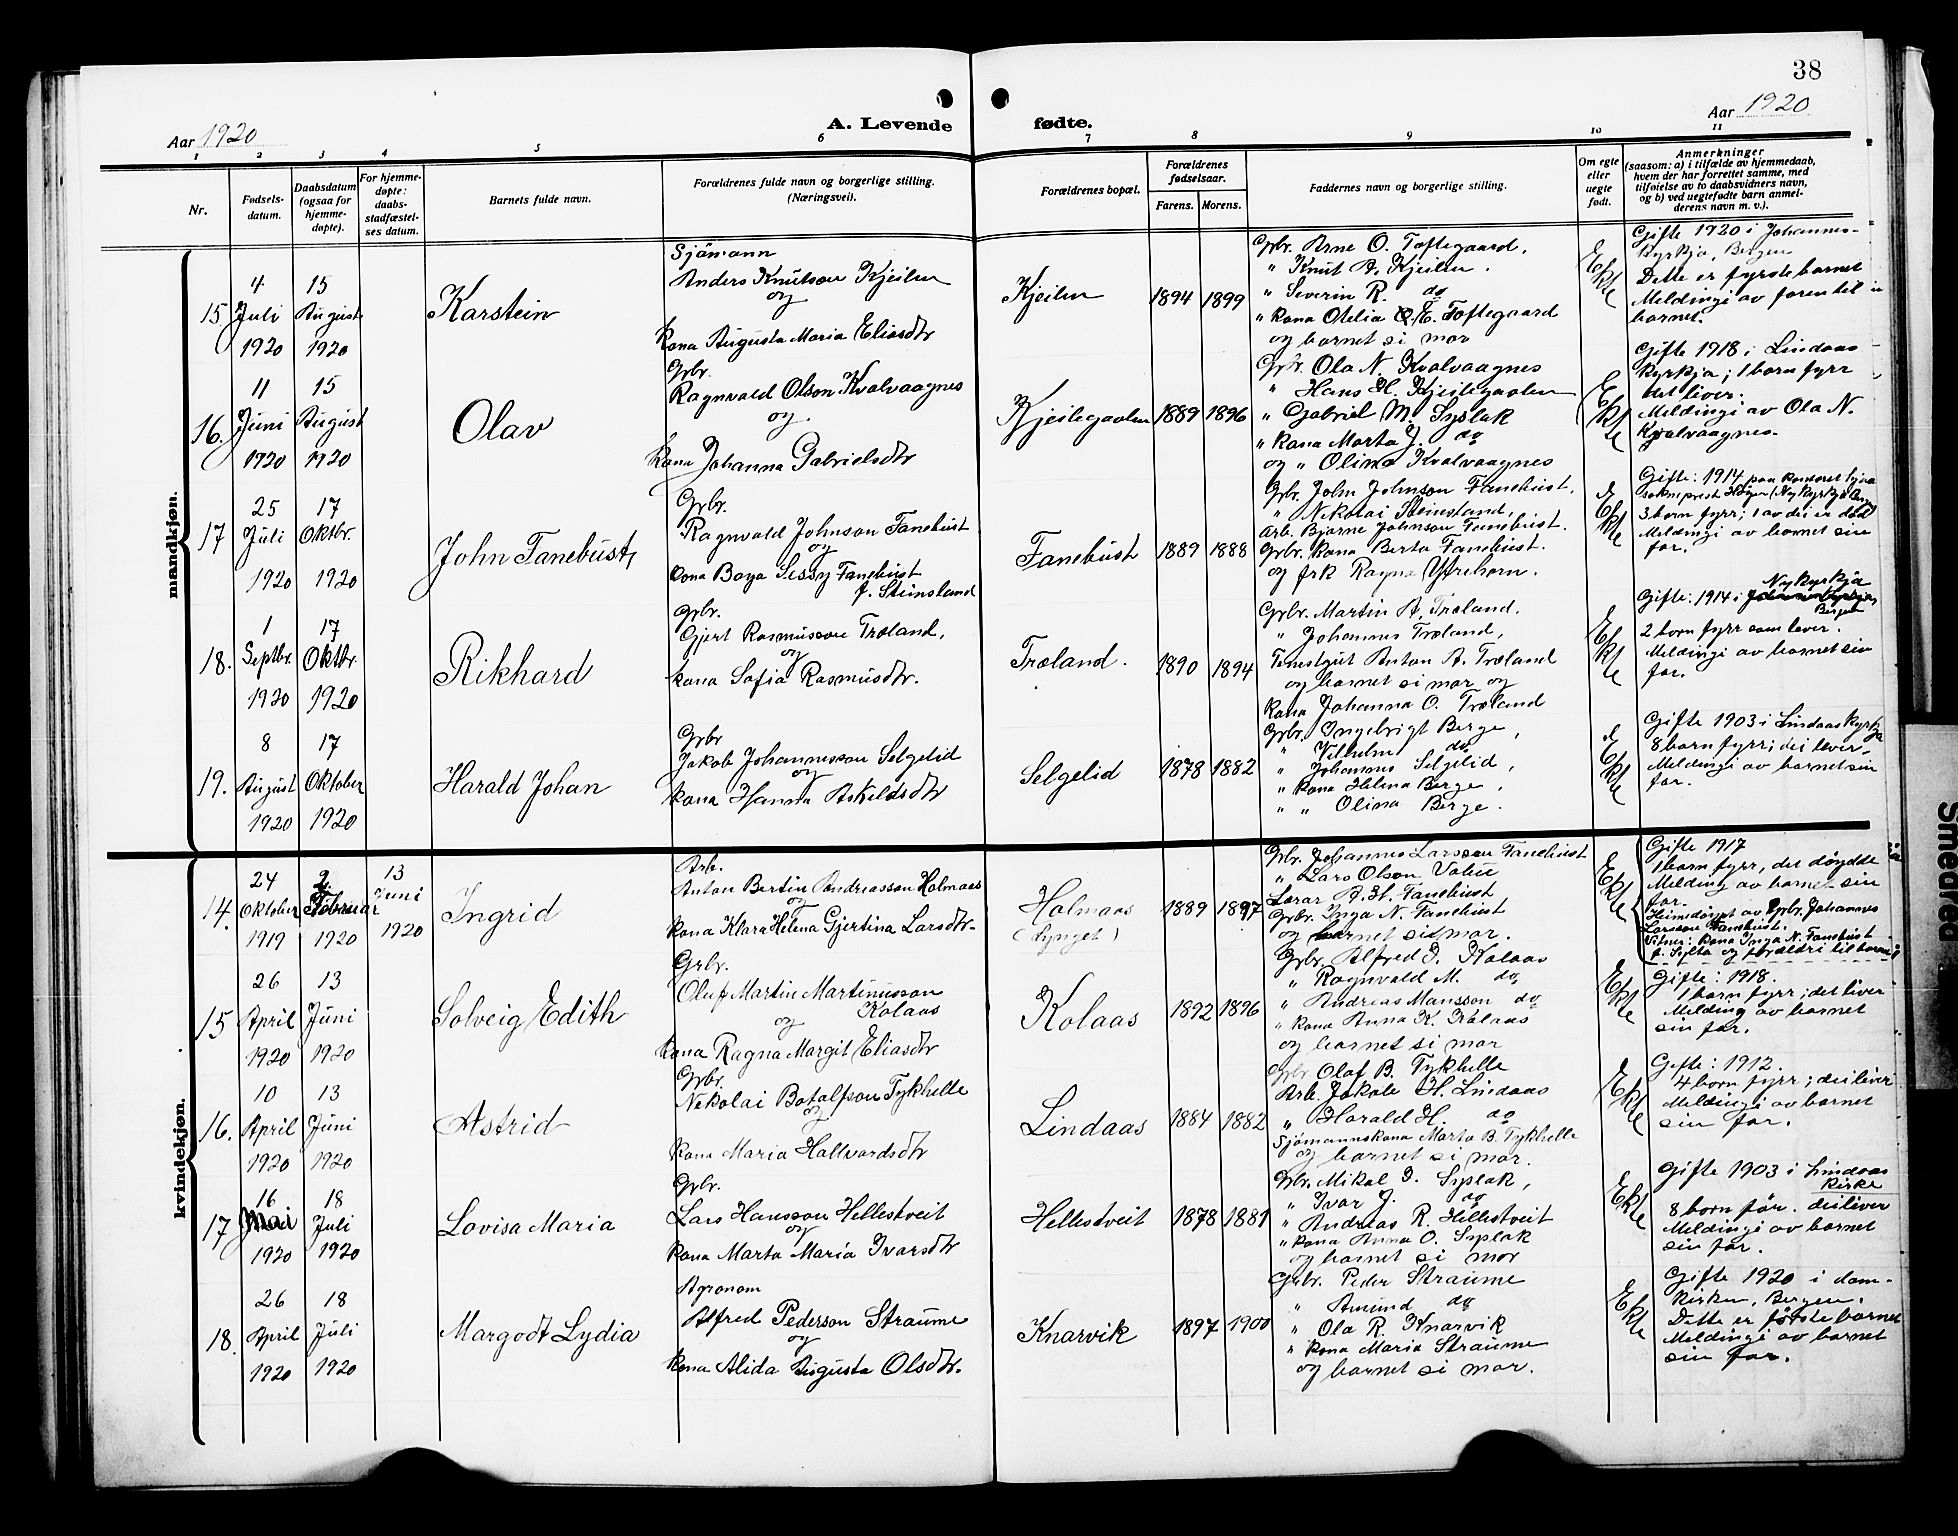 38
Aar 1920
A. Levende
fødte.
Aar 1920
1 2 3 4 5 6 7 8 9 10 11
Nr.
Fødsels-
datum.
Daabsdatum
(ogsaa for
hjemme-
døpte).
For hjemme-
døpte:
daabs-
stadfæstel-
ses datum.
Barnets fulde navn.
Forældrenes fulde navn og borgerlige stilling.
(Næringsvei).
Forældrenes bopæl.
Forældrenes
fødselsaar.
Farens. Morens.
Faddernes navn og borgerlige stilling.
Om egte
eller
uegte
født.
Anmerkninger
(saasom: a) i tilfælde av hjemmedaab,
hvem der har forrettet samme, med
tilføielse av to daabsvidners navn,
og b) ved uegtefødte barn anmel-
derens navn m. v.).
mandkjøn.
15
4
Juli
1920
15
August
1920
Karstein
Sjömann
Anders Knutson Kjeilen
og
kona Augusta Maria Eliasdtr
Kjeilen
1894 1899
Grbr. Arne O. Toftegaard,
" Knut A. Kjeilen.
" Severin R. do
" kona Otelia E. Toftegaard
og barnet si mor
Ekte
Gifte 1920 i Johannes-
kyrkja, Bergen
Dette er fyrste barnet
Meldingi av faren til
barnet.
16.
11
Juni
1920
15
August
1920
Olav
Grbr.
Ragnvald Olson Kvalvaagnes
og
kona Johanna Gabrielsdtr
Kjeilegavlen
1889 1896
Grbr. Ola N. Kvalvaagnes
" Hans H. Kjeilegavlen
" Gabriel M. Syslak
" kona Marta J. do
og " Olina Kvalvaagnes
Ekte
Gifte 1918 i Lindaas
kyrkja; 1 born fyrr
det liver.
Meldingi av Ola N.
Kvalvaagnes.
17
25
Juli
1920
17
Oktbr.
1920
John Fanebust
Grbr.
Ragnvald Johnson Fanebust
og
kona Borga Sessy Fanebust
f. Steinsland
Fanebust
1889 1888
Grbr. John Johnson Fanebust.
" Nikolai Steinsland,
Arb. Bjarne Johnson Fanebust.
Grbr. kona Berta Fanebust.
og frk Ragna Ytrehorn.
Ekte
Gifte: 1914 paa kontoret
sokneprest
3 born fyrr; 1 av dei er död
Meldingi av barnet sin
far.
18.
1
Septbr.
1920
17
Oktbr.
1920
Rikhard
Grbr.
Gjert Rasmusson Træland,
og
kona Sofia Rasmusdtr.
Træland.
1890 1894
Grbr. Martin A. Træland.
" Johannes Træland,
Tenestgut Anton A. Træland
og barnet si mor og
kona Johanna O. Træland
Ekte
Nykyrkja
Gifte: 1914 i
Bergen
2 born fyrr som lever.
Meldingi av barnet sin
far.
19.
8
August
1920
17
Oktober
1920
Harald Johan
Grbr
Jakob Johannesson Selgelid
og
kona Hanna Askeldsdtr
Selgelid
1878 1882
Grbr. Ingebrigt Berge,
" Vilhelm do
" Johannes Selgelid,
" kona Helena Berge,
" " Olina Berge.
Ekte
Gifte 1903 i Lindaas kyrkja
8 born fyrr; dei lever.
Meldingi av barnet sin
far.
kvindekjøn.
14.
24
Oktober
1919
2.
Februar
1920
13
Juni
1920
Ingrid
Arb.
Anton Bertin Andreasson Holmaas
og
kona Klara Helena Gjertina Larsdtr.
Holmaas
(Lynget)
1889 1897
Grbr. Johannes Larsson Fanebust
" Lars Olson
Lærar A. H. Fanebust
Grbr. Inga N. Fanebust
og barnet si mor.
Ekte
Gifte 1917
1 born fyrr, det döydde
Melding av barnet sin
far.
Heimedöypt av Grbr. Johannes
Larsson Fanebust.
Vitner: kona Inga N. Fanebust
f. Sylta og foreldri til barnet
15
26
April
1920
13
Juni
1920
Solveig Edith
Grbr.
Oluf Martin Martinusson
Kolaas
og
kona Ragna Margit Eliasdtr
Kolaas
1892 1896
Grbr. Alfred J. Kolaas
" Ragnvald M. do
" Andreas Mansson do
" kona Anna K. Kolaas
og barnet si mor
Ekte
Gifte: 1918.
1 born fyrr; det liver
Melding av barnet
sin far.
16.
10
April
1920
13
Juni
1920
Astrid
Grbr.
Nikolai Botolfson Tykhelle
og
kona Maria Hallvardsdtr
Lindaas
1884 1882
Grbr Olaf B. Tykhelle
Arb. Jakob H. Lindaas
" Harald H. do
Sjömannskona Marta B. Tykhelle
og barnet si mor.
Ekte
Gifte: 1912.
4 born fyrr; dei liver
Meldingi av barnet
sin far.
17
16
Mai
1920
18
Juli
1920
Lovisa Maria
Grbr.
Lars Hansson Hellestveit
og
kona Marta Maria Ivarsdtr
Hellestveit
1878 1881
Grbr. Mikal I. Syslak,
" Ivar J. do
" Andreas R. Hellestveit
" kona Anna O. Syslak
og barnet si mor
Ekte
Gifte 1903 i Lindaas
kirke
8 born før. dei liver
Meldingi av barnet
sin far.
18.
26
April
1920
18
Juli
1920
Margodt Lydia
Agronom
Alfred Pederson Straume
og
kona Alida Augusta Olsdtr.
Knarvik
1897 1900
Grbr. Peder Straume
" Amund do
" Ola R. Knarvik
" kona Maria Straume
og barnet si mor.
Ekte
Gifte 1920 i dom-
kirken, Bergen.
Dette er förste barnet
Meldingi av barnet
sin far.